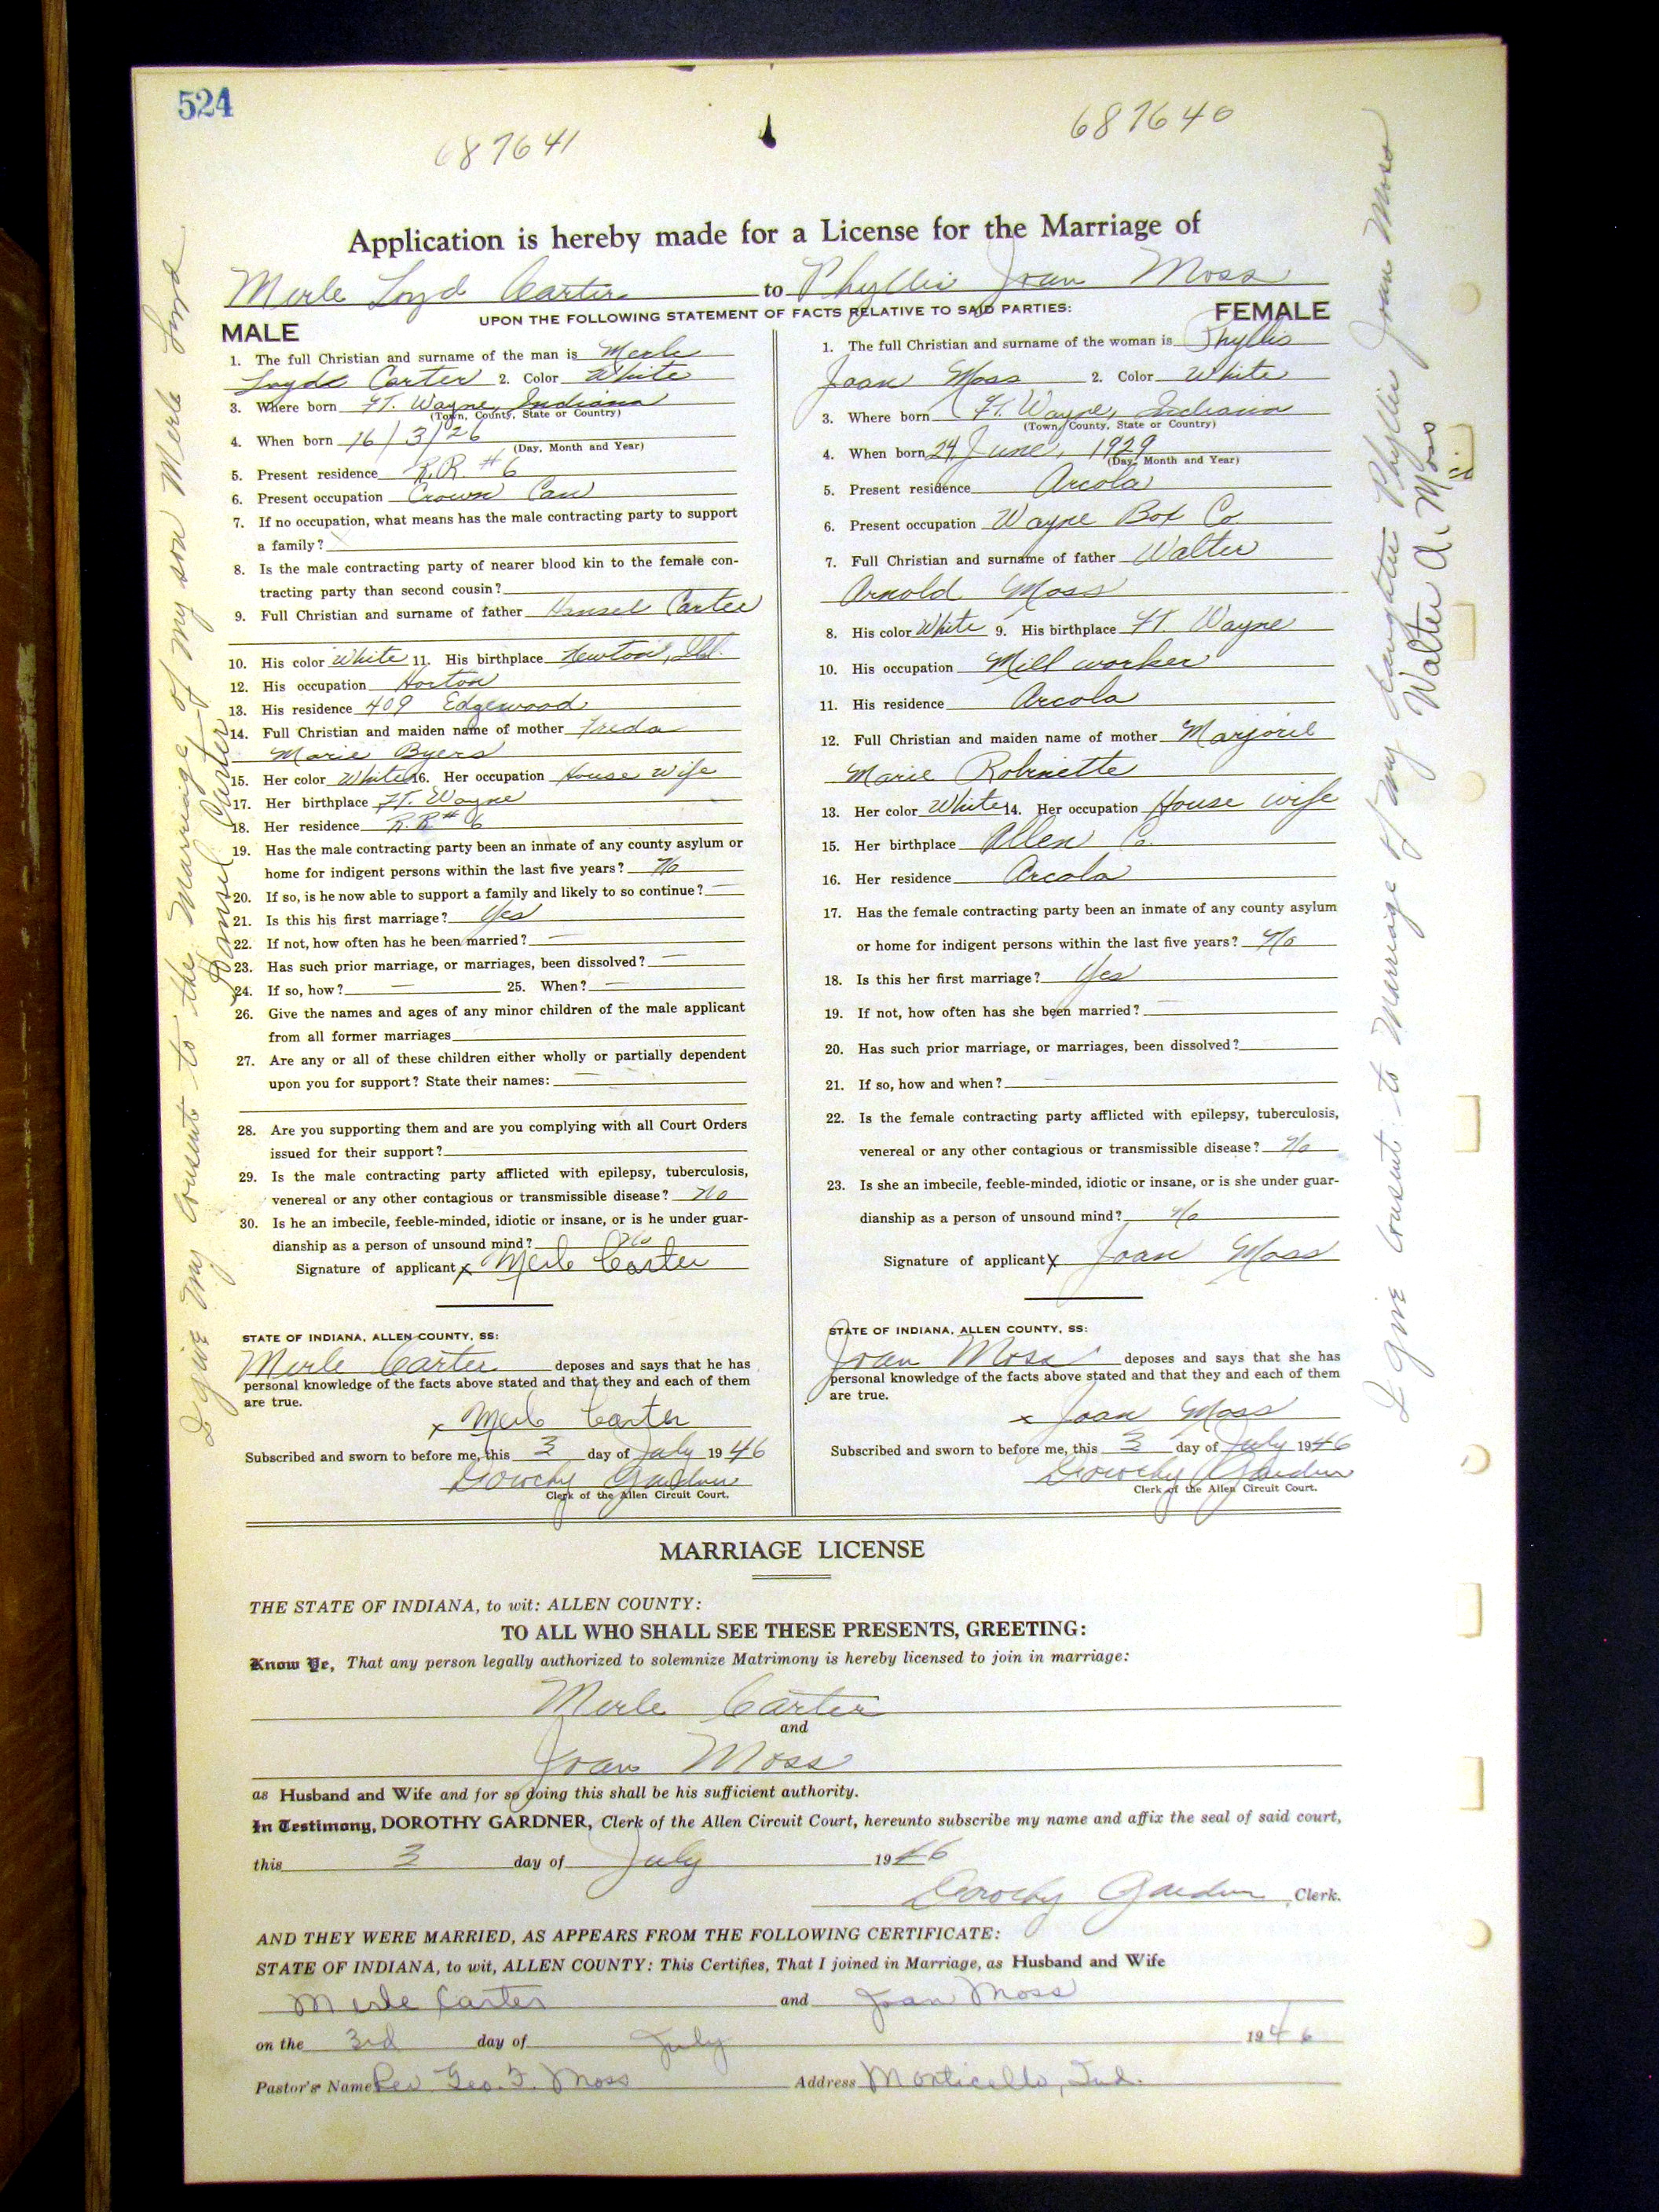 524
687641
687640
Application is hereby made for a License for the Marriage of
Merle Loyd Carter to Phyllis Joan Moss
UPON THE FOLLOWING STATEMENT OF FACTS RELATIVE TO SAID PARTIES:
MALE
1. The full Christian and surname of the man is Merle
Loyde Carter 2. Color White
3. Where born Ft. Wayne, Indiana
(Town, County, State or Country)
4. When born 16/3/26
(Day, Month and Year)
5. Present residence R.R. #6
6. Present occupation Crown Can
7. If no occupation, what means has the male contracting party to support
a family?
8. Is the male contracting party of nearer blood kin to the female con-
tracting party than second cousin?
9. Full Christian and surname of father Hansel Carter
10. His color White 11. His birthplace Newton, Ill.
12. His occupation Horton
13. His residence 409 Edgewood
14. Full Christian and maiden name of mother Freda
Marie Byers
15. Her color White 16. Her occupation House wife
17. Her birthplace Ft. Wayne
18. Her residence R.R # 6
19. Has the male contracting party been an inmate of any county asylum or
home for indigent persons within the last five years? No
20. If so, is he now able to support a family and likely to so continue? —
21. Is this his first marriage? Yes
22. If not, how often has he been married? —
23. Has such prior marriage, or marriages, been dissolved? —
24. If so, how? — 25. When? —
26. Give the names and ages of any minor children of the male applicant
from all former marriages
27. Are any or all of these children either wholly or partially dependent
upon you for support? State their names: —
28. Are you supporting them and are you complying with all Court Orders
issued for their support?
29. Is the male contracting party afflicted with epilepsy, tuberculosis,
venereal or any other contagious or transmissible disease? No
30. Is he an imbecile, feeble-minded, idiotic or insane, or is he under guar-
dianship as a person of unsound mind? No
Signature of applicant x Merle Carter
STATE OF INDIANA, ALLEN COUNTY, SS:
Merle Carter deposes and says that he has
personal knowledge of the facts above stated and that they and each of them
are true.
x Merle Carter
Subscribed and sworn to before me, this 3 day of July 1946
Dorothy Gardner
Clerk of the Allen Circuit Court.
FEMALE
1. The full Christian and surname of the woman is Phyllis
Joan Moss 2. Color White
3. Where born Ft. Wayne, Indiana
(Town, County, State or Country)
4. When born 24 June, 1929
(Day, Month and Year)
5. Present residence Arcola
6. Present occupation Wayne Box Co.
7. Full Christian and surname of father Walter
Arnold Moss
8. His color White 9. His birthplace Ft. Wayne
10. His occupation Mill worker
11. His residence Arcola
12. Full Christian and maiden name of mother Marjorie
Marie Robinette
13. Her color White 14. Her occupation House wife
15. Her birthplace Allen Co.
16. Her residence Arcola
17. Has the female contracting party been an inmate of any county asylum
or home for indigent persons within the last five years? No
18. Is this her first marriage? Yes
19. If not, how often has she been married? —
20. Has such prior marriage, or marriages, been dissolved?
21. If so, how and when? —
22. Is the female contracting party afflicted with epilepsy, tuberculosis,
venereal or any other contagious or transmissible disease? No
23. Is she an imbecile, feeble-minded, idiotic or insane, or is she under guar-
dianship as a person of unsound mind? No
Signature of applicant X Joan Moss
STATE OF INDIANA, ALLEN COUNTY, SS:
Joan Moss deposes and says that she has
personal knowledge of the facts above stated and that they and each of them
are true.
x Joan Moss
Subscribed and sworn to before me, this 3 day of July 1946
Dorothy Gardner
Clerk of the Allen Circuit Court.
I give my consent to the Marriage of my son Merle Loyd
Hansel Carter
I give consent to Marriage of my daughter Phyllis Joan Moss
Walter A. Moss
MARRIAGE LICENSE
THE STATE OF INDIANA, to wit: ALLEN COUNTY:
TO ALL WHO SHALL SEE THESE PRESENTS, GREETING:
Know Ye, That any person legally authorized to solemnize Matrimony is hereby licensed to join in marriage:
Merle Carter
and
Joan Moss
as Husband and Wife and for so doing this shall be his sufficient authority.
In Testimony, DOROTHY GARDNER, Clerk of the Allen Circuit Court, hereunto subscribe my name and affix the seal of said court,
this 3 day of July 1946
Dorothy Gardner, Clerk.
AND THEY WERE MARRIED, AS APPEARS FROM THE FOLLOWING CERTIFICATE:
STATE OF INDIANA, to wit, ALLEN COUNTY: This Certifies, That I joined in Marriage, as Husband and Wife
Merle Carter and Joan Moss
on the 3rd day of July 1946
Pastor's Name Rev Geo. F. Moss Address Monticello, Ind.